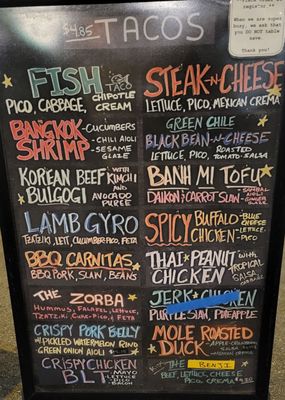 $4.85 TACOS
register.
When we are super
busy, we ask that
you DO NOT table
save.
Thank you!
FISH TACO
PICO, CABBAGE, CHIPOTLE CREAM
BANGKOK SHRIMP
-CUCUMBERS
-CHILI AIOLI
-SESAME GLAZE
KOREAN BEEF BULGOGI
WITH KIMCHI AND AVOCADO PUREE
LAMB GYRO
TZATZIKI, LETT, CUCUMBER PICO, FETA
BBQ CARNITAS
BBQ PORK, SLAW, BEANS
THE ZORBA
HUMMUS, FALAFEL, LETTUCE,
TZATZIKI, CUKE-PICO, FETA
CRISPY PORK BELLY
PICKLED WATERMELON RIND
GREEN ONION AIOLI
CRISPY CHICKEN
BLT
MAYO
LETTUCE
PICO
BACON
STEAK-N-CHEESE
LETTUCE, PICO, MEXICAN CREMA
GREEN CHILE
BLACK BEAN-N-CHEESE
LETTUCE, PICO, ROASTED TOMATO-SALSA
BANH MI TOFU
DAIKON & CARROT SLAW
-SAMBAL AIOLI
-GINGER GLAZE
SPICY BUFFALO CHICKEN
-BLUE CHEESE
-LETTUCE
-PICO
THAI PEANUT CHICKEN
WITH TROPICAL SALSA
JERK CHICKEN
PURPLE SLAW, PINEAPPLE
MOLE ROASTED
DUCK
THE BENJI
BEEF, LETTUCE, CHEESE
PICO, CREMA